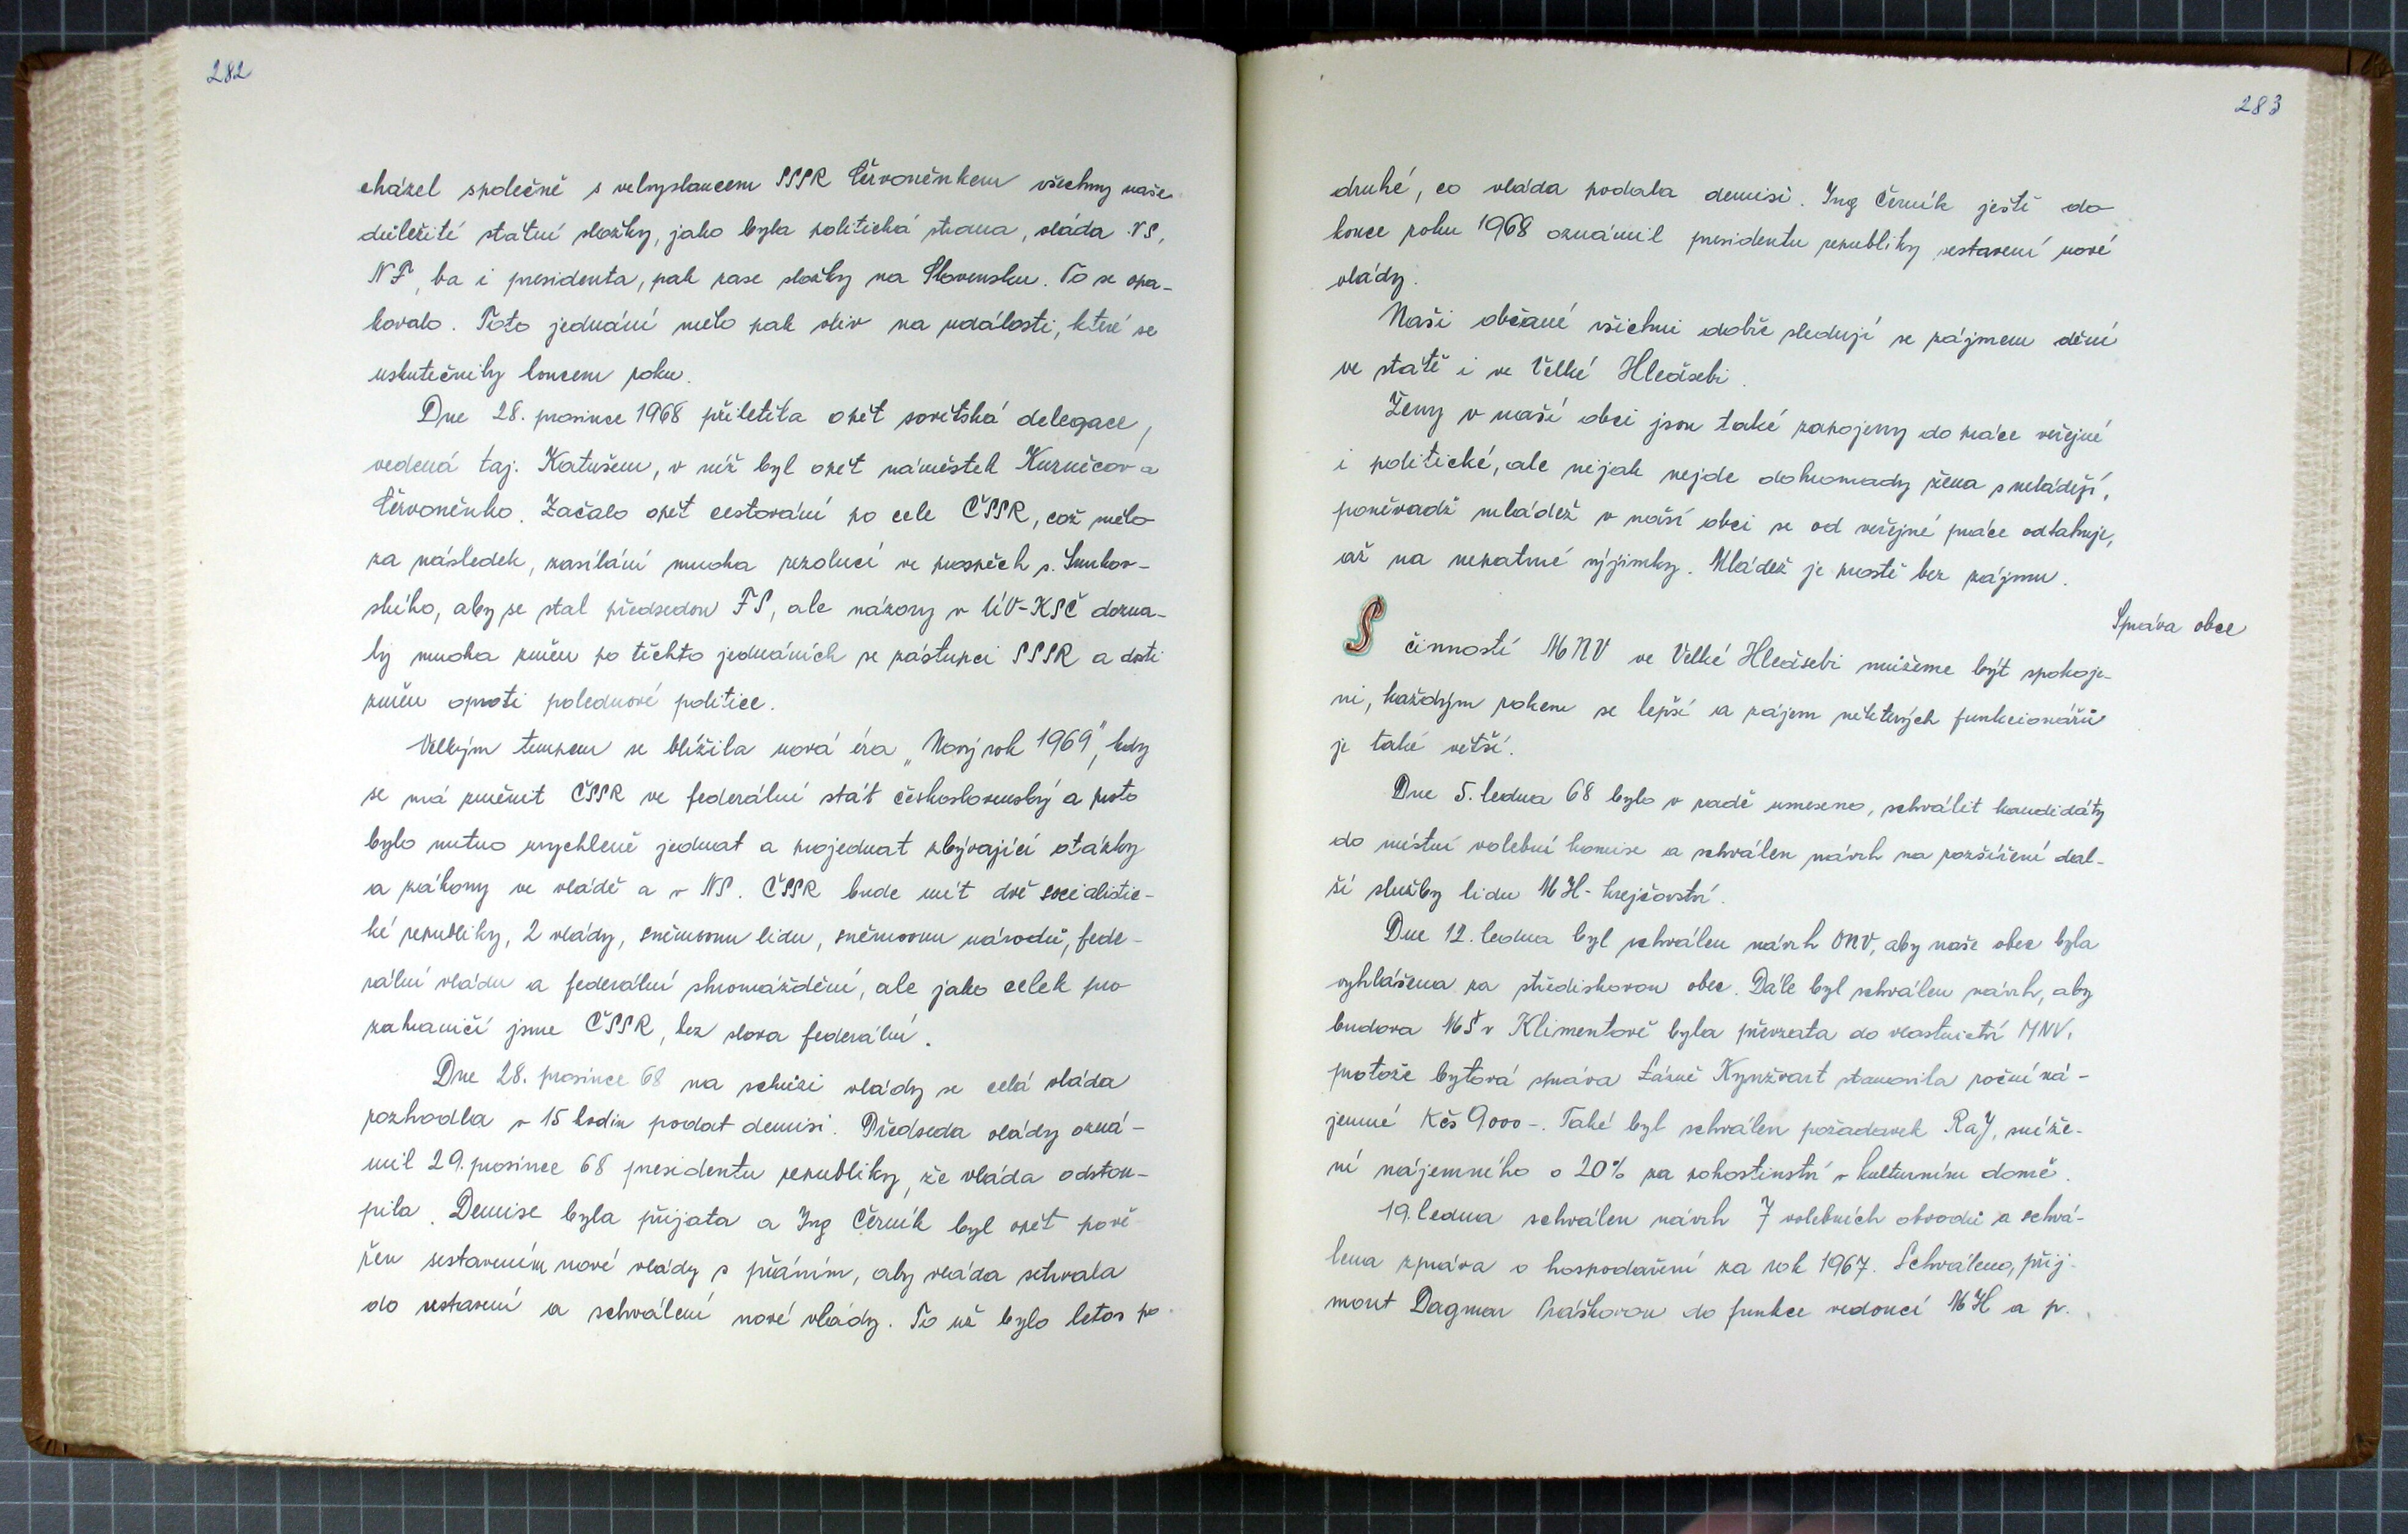 282
cházel společně s velvyslancem SSSR Červoněnkem všechny naše
důležité státní složky, jako byla politická strana, vláda NS,
NF, ba i presidenta, pak zase složky na Slovensku. To se opa-
kovalo. Toto jednání mělo pak vliv na události, které se
uskutečnily koncem roku.
Dne 28. prosince 1968 přiletěla opět sovětská delegace,
vedená taj. Katušem, v níž byl opět náměstek Kuzněcov a
Červoněnko. Začalo opět cestování po cele ČSSR, což mělo
za následek, zasílání mnoha rezolucí ve prospěch s. Smrkov-
ského, aby se stal předsedou FS, ale názory v ÚV-KSČ dozna-
ly mnoha změn po těchto jednáních se zástupci SSSR a dosti
změn oproti polednové politice.
Velkým tempem se blížila nová éra „Nový rok 1969", kdy
se má změnit ČSSR ve federální stát československý a proto
bylo nutno urychleně jednat a projednat zbývající otázky
a zákony ve vládě a v NS. ČSSR bude mít dvě socialistic-
ké republiky, 2 vlády, sněmovnu lidu, sněmovnu národů, fede-
rální vládu a federální shromáždění, ale jako celek pro
zahraničí jsme ČSSR, bez slova federální.
Dne 28. prosince 68 na schůzi vlády se celá vláda
rozhodla v 15 hodin podat demisi. Předseda vlády ozná-
mil 29. prosince 68 presidentu republiky, že vláda odstou-
pila. Demise byla přijata a Ing Černík byl opět pově-
řen sestavením nové vlády s přáním, aby vláda setrvala
do sestavení a schválení nové vlády. To už bylo letos po
283
druhé, co vláda podala demisi. Ing Černík ještě do
konce roku 1968 oznámil presidentu republiky sestavení nové
vlády.
Naši občané všichni dobře sledují se zájmem dění
ve státě i ve Velké Hleďsebi.
Ženy v naší obci jsou také zapojeny do práce veřejné
i politické, ale nijak nejde dohromady žena s mládeží,
poněvadž mládež v naší obci se od veřejné práce odtahuje,
až na nepatrné výjimky. Mládež je prostě bez zájmu.
Správa obce
S činností MNV ve Velké Hleďsebi můžeme být spokoje-
ni, každým rokem se lepší a zájem některých funkcionářů
je také větší.
Dne 5. ledna 68 bylo v radě usneseno, schválit kandidáty
do místní volební komise a schválen návrh na rozšíření dal-
ší služby lidu MH- krejčovství.
Dne 12. ledna byl schválen návrh ONV, aby naše obec byla
vyhlášena za střediskovou obec. Dále byl schválen návrh, aby
budova MŠ v Klimentově byla převzata do vlastnictví MNV,
protože bytová správa Lázně Kynžvart stanovila roční ná-
jemné Kčs 9000-. Také byl schválen požadavek RaJ, sníže-
ní nájemného o 20% za pohostinství v kulturním domě.
19. ledna schválen návrh 7 volebních obvodů a schvá-
lena zpráva o hospodaření za rok 1967. Schváleno, přij-
mout Dagmar Práškovou do funkce vedoucí MH a p.